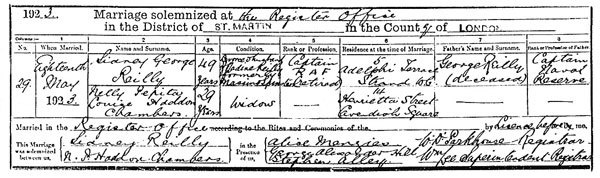 1923. Marriage solemnized at the Register Office
in the District of ST. MARTIN in the County of LONDON
Columns:— 1 2 3 4 5 6 7 8
No. When Married. Name and Surname. Age Condition. Rank or Profession. Residence at the time of Marriage. Father's Name and Surname. Rank or Profession of Father.
29. Eighteenth May 1923. Sidney George Reilly 49 years Captain RAF (retired) 5 Adelphi Terrace Strand W.C. George Reilly (deceased) Captain Naval Reserve
Nelly Pepita Louise Haddon Chambers. 29 years Widow Henrietta Street Cavendish Square
Married in the Register Office according to the Rites and Ceremonies of the by Licence before me,
This Marriage was solemnized between us, Sidney Reilly N. L. Haddon Chambers in the Presence of us, Alice Menzies George Alexander Hill Stephen Alley W. Parkhouse Registrar Superintendent Registrar